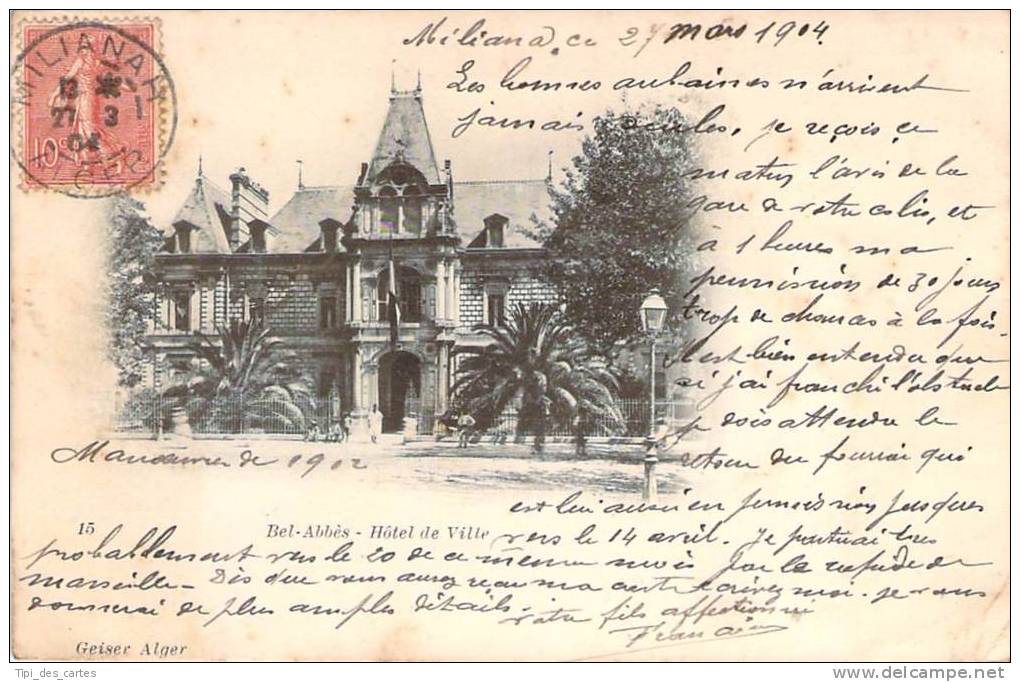 MILIANAH
13
27 3
04
ALGER
10c
Miliana, ce 27 mars 1904.
Les bonnes aubaines n'arrivent
jamais seules, je reçois ce
matin l'avis de la
gare de votre colis, et
à 1 heures ma
permission de 30 jours
trop de chances à la fois.
il est bien entendu que
si j'ai franchi l'obstacle
je dois attendre le
retour du fourrier qui
est lui aussi en permission jusques
vers le 14 avril. Je partirai très
probablement vers le 20 de ce même mois par le rapide de
marseille - Dès que vous aurez reçu ma carte écrivez moi. je vous
donnerai de plus amples détails - votre fils affectionné
Francis
Manœuvres de 1902
15
Bel-Abbès - Hôtel de Ville
Geiser Alger
Tipi_des_cartes
www.delcampe.net